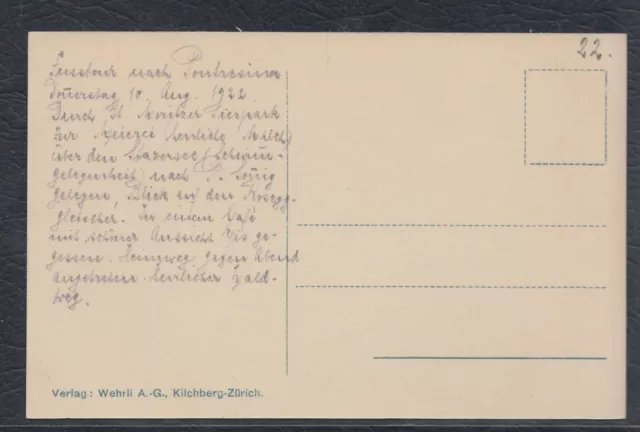 22.
Fusstour nach Pontresina
Donnerstag 10 Aug. 1922
Durch St. Moritzer Tierpark
zur Meierei (herrliche Milch)
über den Stazersee (Schwimm-
gelegenheit) nach P. Sonnig
gelegen, Blick auf den Rosegg-
gletscher. In einem Café
mit schöner Aussicht Eis ge-
gessen. Heimweg gegen Abend
angetreten. Herrlicher Wald-
weg.
Verlag: Wehrli A.-G., Kilchberg-Zürich.